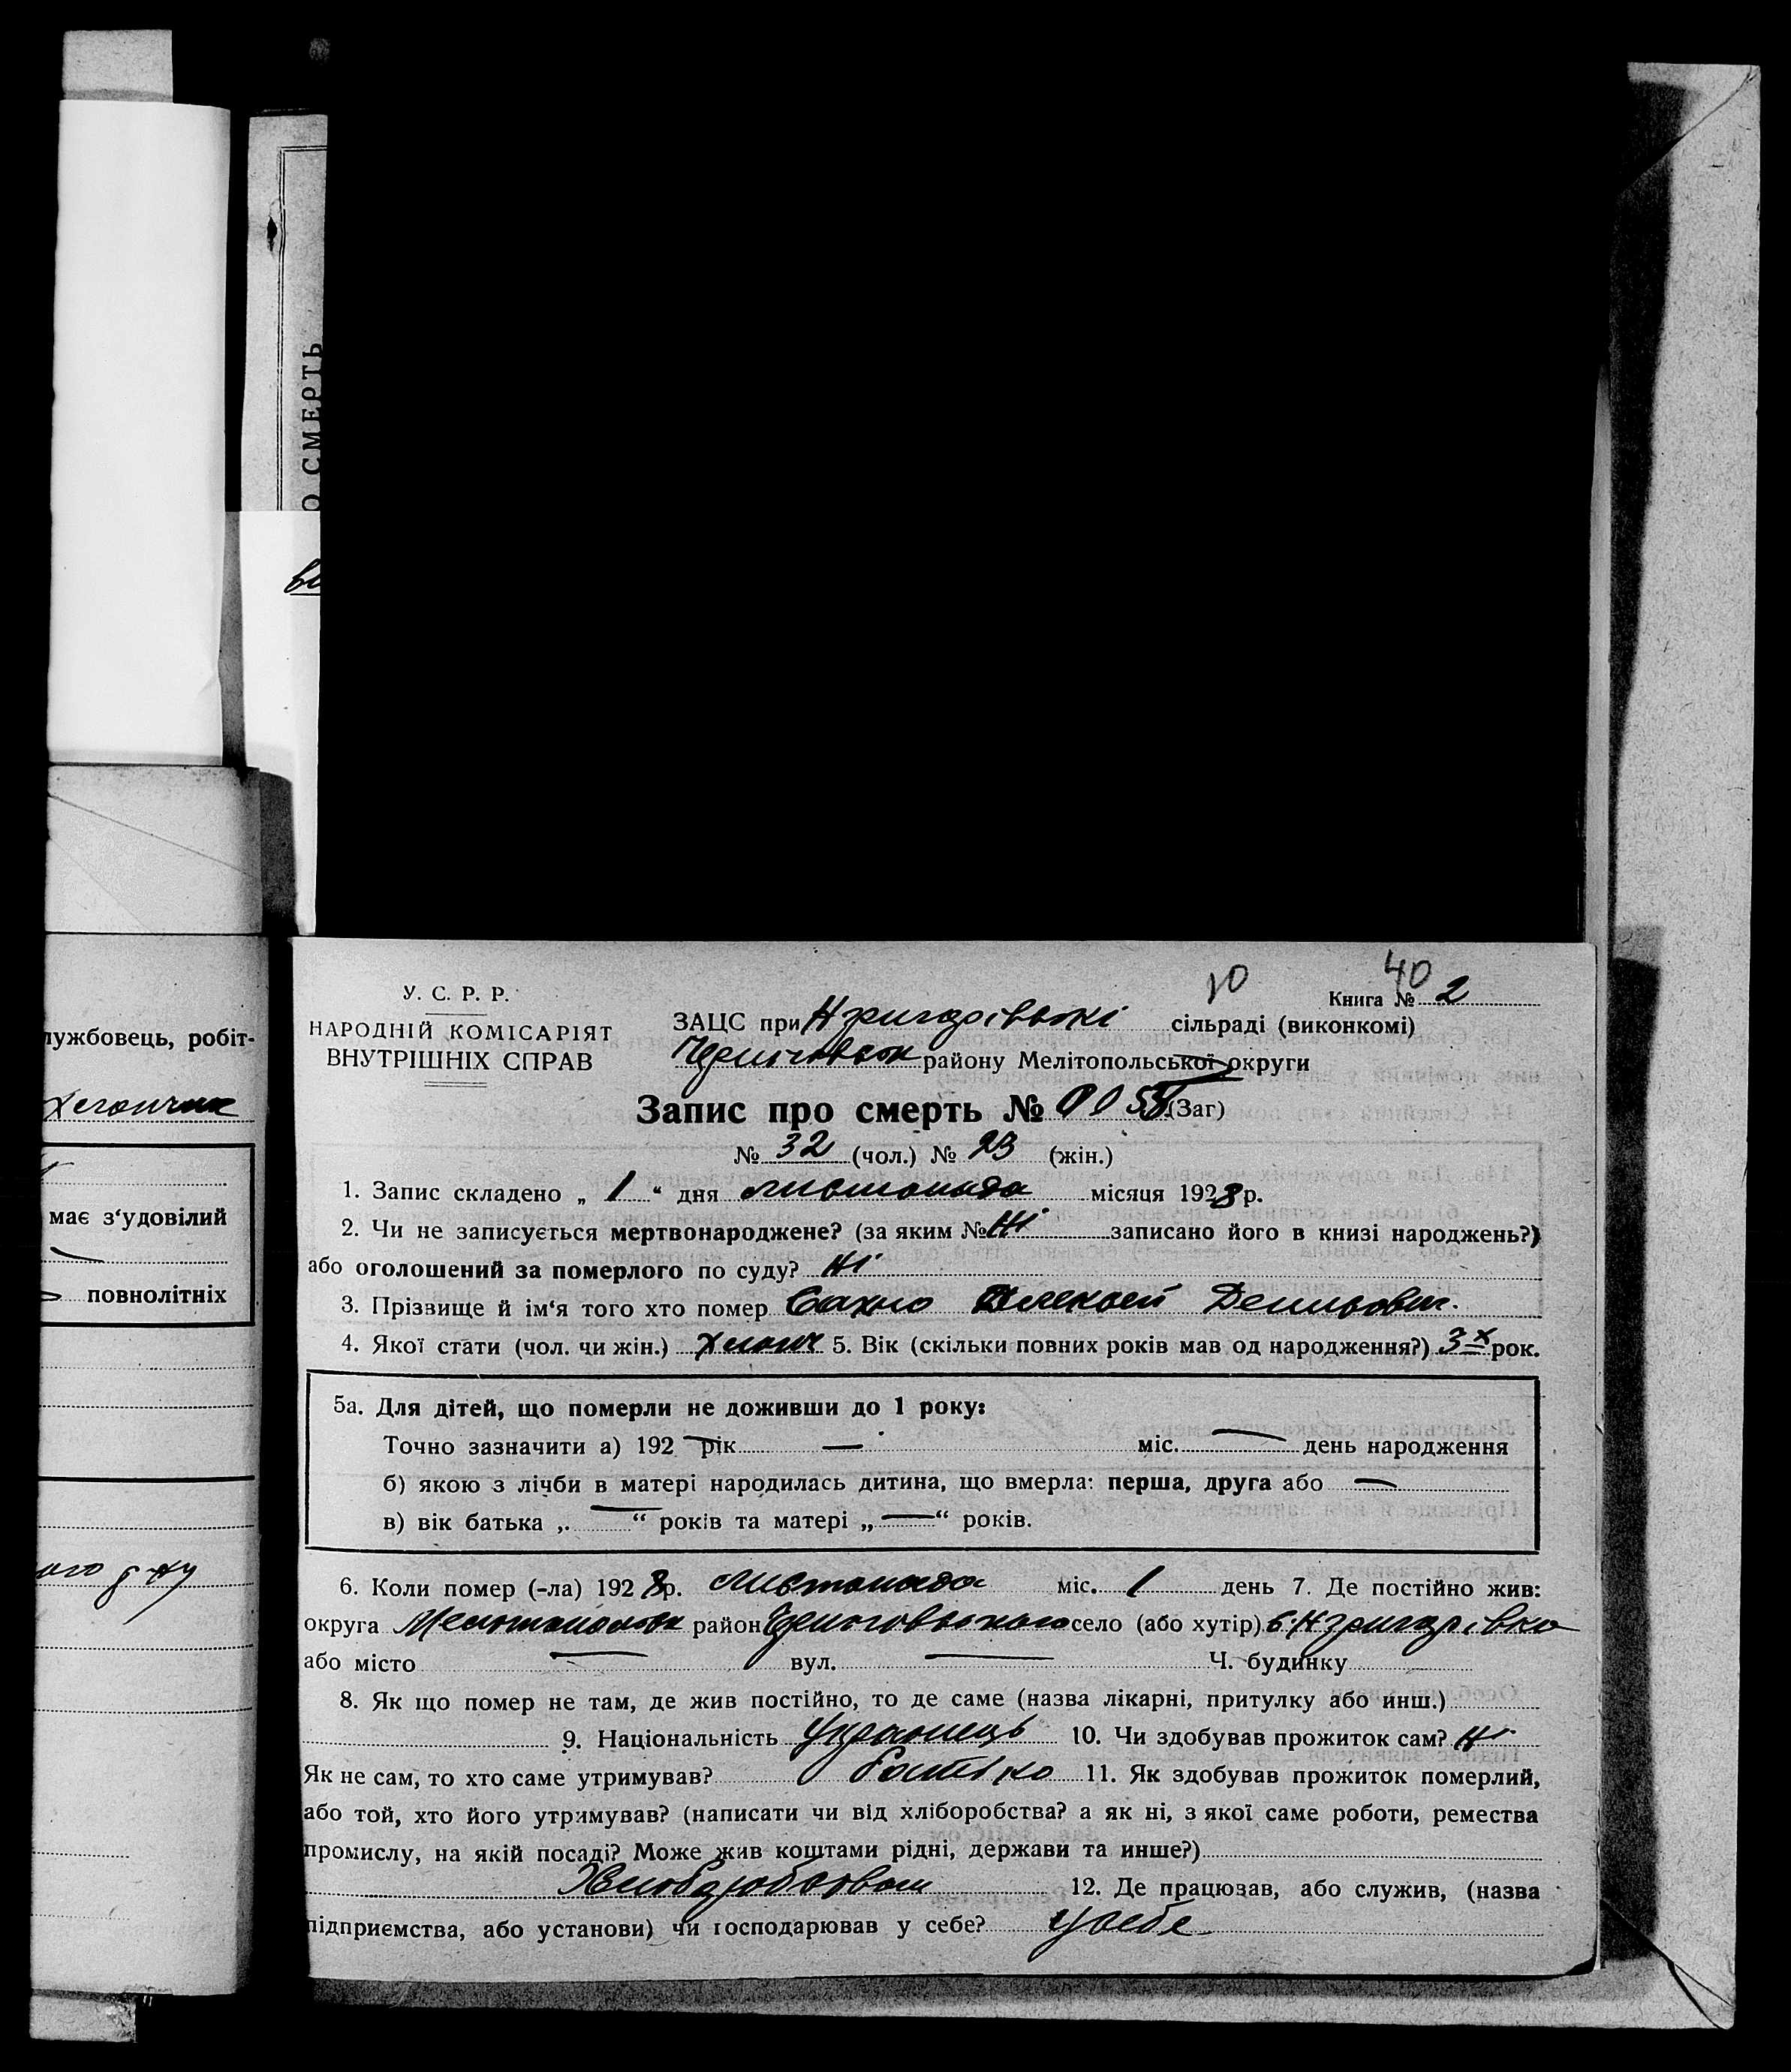 О СМЕРТЬ
лужбовець, робіт-
має з‘удовілий
повнолітніх
10 40
У. С. Р. Р.
Книга № 2
НАРОДНІЙ КОМІСАРІЯТ
ВНУТРІШНІХ СПРАВ
ЗАЦС при Н григорівські сільраді (виконкомі)
району Мелітопольської округи
Запис про смерть № 0055 (Заг)
№ 32 (чол.) № 23 (жін.)
1. Запис складено „ 1 “ дня листопада місяця 1928 р.
2. Чи не записується мертвонароджене? (за яким № Ні записано його в книзі народжень?)
або оголошений за померлого по суду? Ні
3. Прізвище й ім‘я того хто помер Сахно Алексей Денисович.
4. Якої стати (чол. чи жін.) хлопч 5. Вік (скільки повних років мав од народження?) 3х рок.
5а. Для дітей, що померли не доживши до 1 року:
Точно зазначити а) 192 — рік — міс. — день народження
б) якою з лічби в матері народилась дитина, що вмерла: перша, друга або —
в) вік батька „ — “ років та матері „ — “ років.
6. Коли помер (-ла) 1928 р. листопада міс. 1 день 7. Де постійно жив:
округа район Черніговського село (або хутір) с. Н григорівка
або місто — вул. — Ч. будинку
8. Як що помер не там, де жив постійно, то де саме (назва лікарні, притулку або инш.)
9. Національність Українець 10. Чи здобував прожиток сам? Ні
Як не сам, то хто саме утримував? Батько 11. Як здобував прожиток померлий,
або той, хто його утримував? (написати чи від хліборобства? а як ні, з якої саме роботи, ремества
промислу, на якій посаді? Може жив коштами рідні, держави та инше?)
12. Де працював, або служив, (назва
підприємства, або установи) чи господарював у себе? У себе